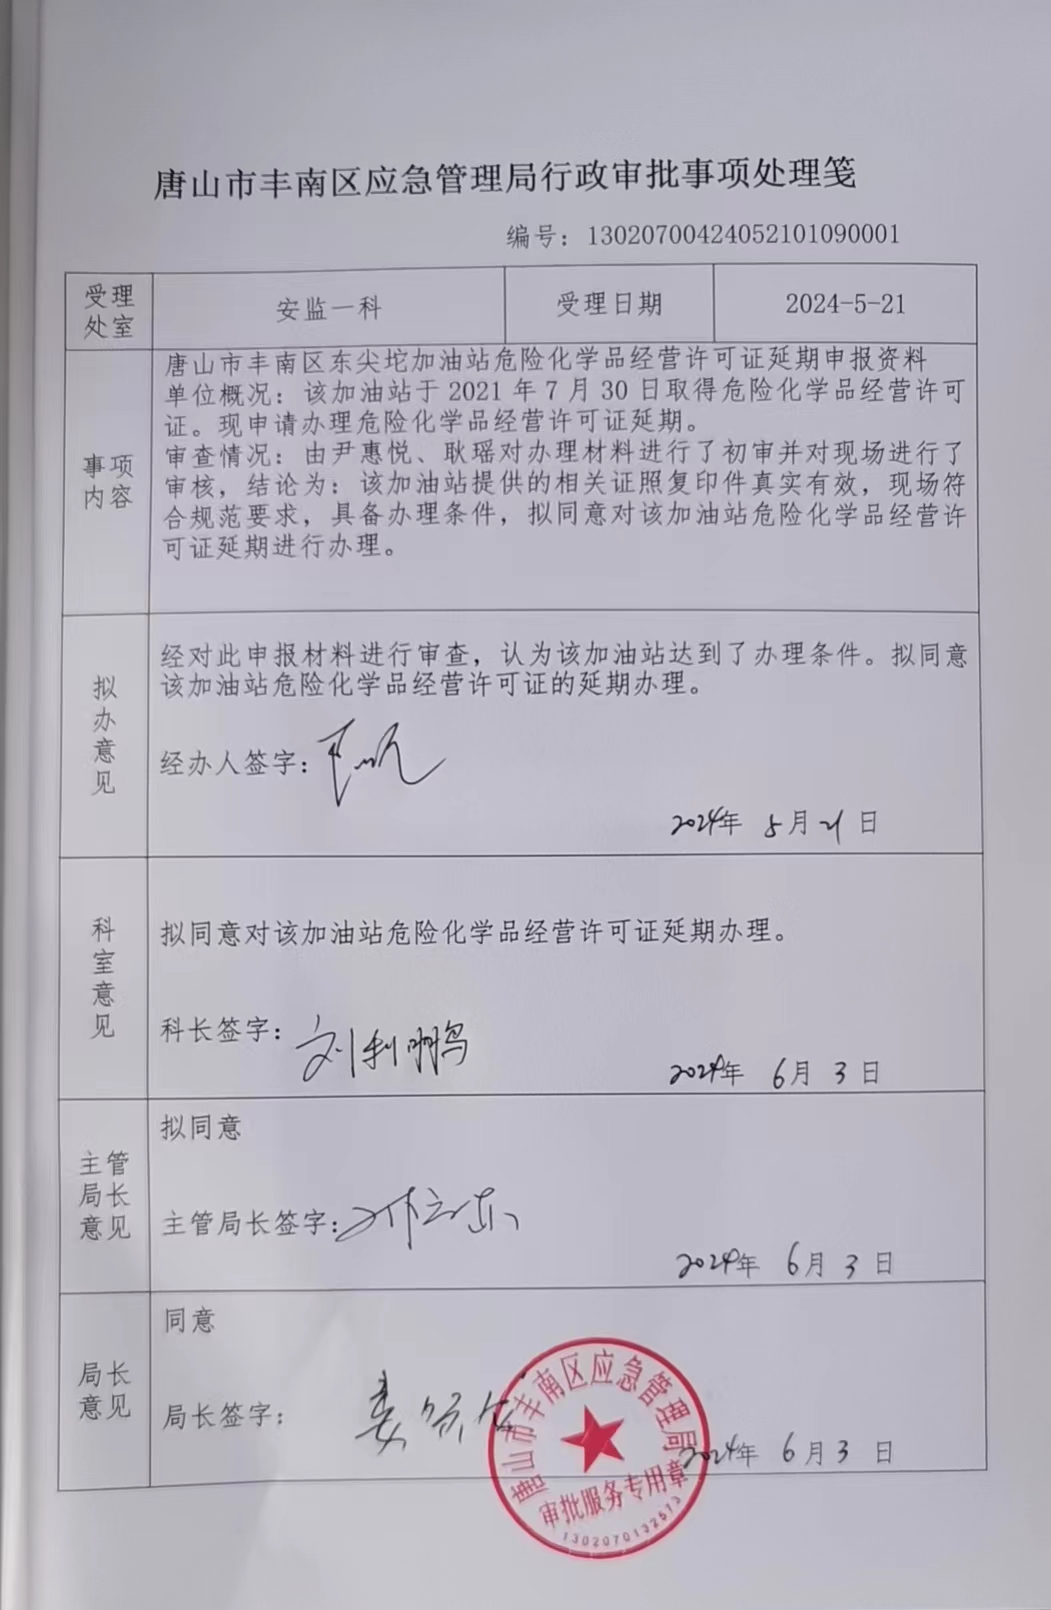 唐山市丰南区应急管理局行政审批事项处理笺
编号：13020700424052101090001
受理
处室
安监一科
受理日期
2024-5-21
事项
内容
唐山市丰南区东尖坨加油站危险化学品经营许可证延期申报资料
单位概况：该加油站于 2021 年 7 月 30 日取得危险化学品经营许可
证。现申请办理危险化学品经营许可证延期。
审查情况：由尹惠悦、耿瑶对办理材料进行了初审并对现场进行了
审核，结论为：该加油站提供的相关证照复印件真实有效，现场符
合规范要求，具备办理条件，拟同意对该加油站危险化学品经营许
可证延期进行办理。
拟
办
意
见
经对此申报材料进行审查，认为该加油站达到了办理条件。拟同意
该加油站危险化学品经营许可证的延期办理。
经办人签字：
2024年 5月21日
科
室
意
见
拟同意对该加油站危险化学品经营许可证延期办理。
科长签字：刘利鹏
2024年 6月 3日
主管
局长
意见
拟同意
主管局长签字：
2024年 6月 3日
局长
意见
同意
局长签字：
2024年 6月 3日
唐山市丰南区应急管理局
审批服务专用章